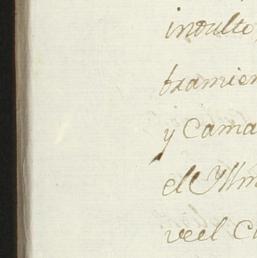 indulto
bramien
y Cama
el Yllm
veel C